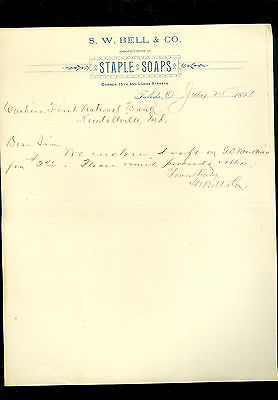 S. W. BELL & CO.
MANUFACTURERS OF
STAPLE SOAPS
CORNER 15TH AND LUCAS STREETS.
Toledo, O. July 25 1891
Cashier First National Bank
Kendallville, Ind.
Dear Sir
We enclose draft on
for $ Please remit proceeds
Yours truly
S.W. Bell & Co.